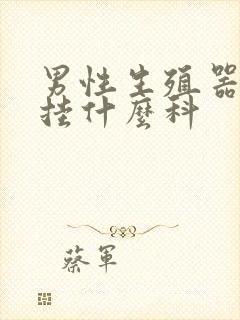 男性生殖器
挂什麼科
蔡軍